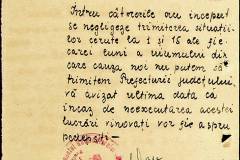 Întru cătrerile au început
se negligeze trimiterea situații-
lor cerute la 1 și 15 ale fie-
cărei luni a viiumului din
care cauza noi nu putem să
trimitem Prefecturii județului,
vă avizat ultima dată că
în caz de neexecutarea acestei
lucrări vinovați vor fi aspru
pedepsiți —